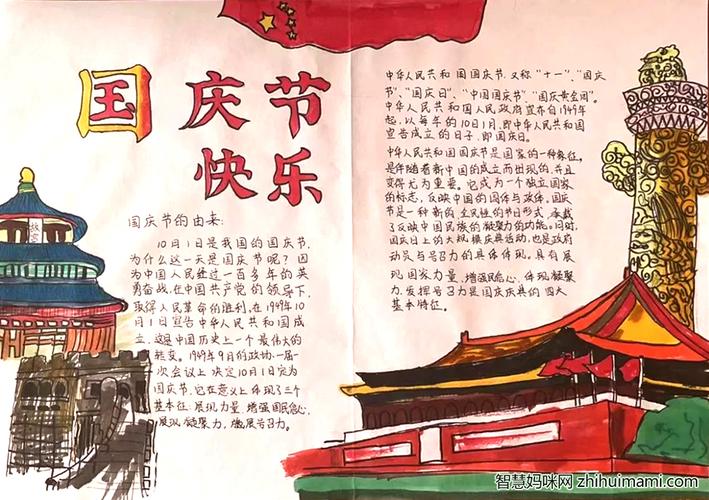 国庆节
快乐
国庆节的由来:
10月1日是我国的国庆节,
为什么这一天是国庆节呢?因
为中国人民经过一百多年的英
勇奋战,在中国共产党的领导下,
取得人民革命的胜利,在1949年10
月1日宣告中华人民共和国成
立,这是中国历史上一个最伟大的
转变。1949年9月的政协一届一
次会议上决定10月1日定为
国庆节,它在意义上体现了三个
基本征:展现力量,增强国民信心,
展现凝聚力,发展号召力。
中华人民共和国国庆节又称“十一”、“国庆
节”、“国庆日”、“中国国庆节”“国庆黄金周”。
中华人民共和国人民政府宣布自1949年
起,以每年的10月1月,即中华人民共和国
宣告成立的日子,即国庆日。
中华人民共和国国庆节是国家的一种象征。
是伴随着新中国的成立而出现的,并且
变得尤为重要。它成为一个独立国家
的标志,反映中国的国体与政体。国庆
节是一种新的、全民性的节日形式,承载
了反映中国民族的凝聚力的功能。同时,
国庆日上的大规模庆典活动,也是政府
动员与号召力的具体体现。具有展
现国家力量,增强民信心,体现凝聚
力,发挥号召力是国庆庆典的四大
基本特征。
故宫
智慧妈咪网 zhihuimami.com